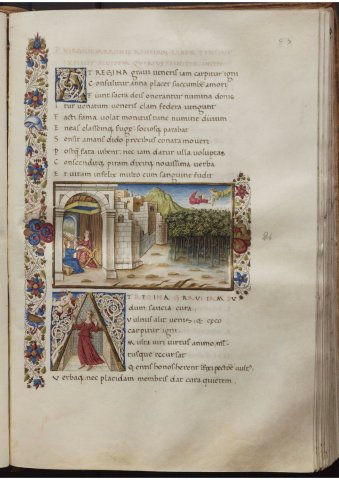 93
P. VIRGILII MARONIS LIBER TERTIVS
INCIPIT QVARTVS
AT REGINA gravi veneris iam carpitur igni
Consulitur anna places succumbere amori
Fiunt sacra deis onerantur numina donis
Itur venatum veneris clam federa iungunt
Facti fama volat monitus tunc numine divum
Eneas classemq; fuge sociosq; parabat
Sensit amans dido precibus conata moveri
Postq̃ fata iubent nec iam datur ulla voluptas
Conscenditq; piram dixitq; novissima verba
Et vitam infelix multo cum sanguine fudit
AT REGINA GRAVI IAM DV
dum saucia cura
Vulnus alit venis: & ceco
carpitur igni.
Multa viri virtus animo mul
tusque recursat
Gentis honos herent ifixi pectore vult⁹
Verbaq; nec placidam membris dat cura quietem.